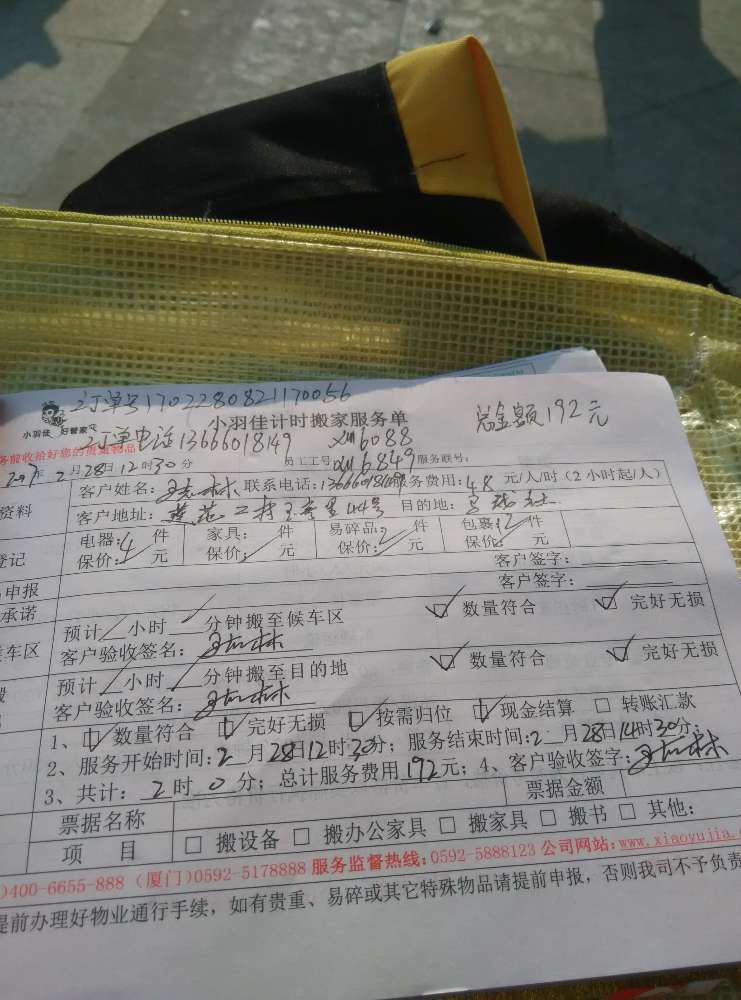 订单号1702280821170056
小羽佳 好管家
小羽佳计时搬家服务单 总金额192元
订单电话13666018149 XM6088
务前收拾好您的贵重物品
2017年2月28日12时30分 员工工号 XM6849 服务联号:
资料 客户姓名: 联系电话:13666018149 服务费用:48 元/人/时(2小时起/人)
客户地址: 莲花二村 44号 目的地:
登记 电器:4 件 家具: 件 易碎品:2 件 包裹:12 件
保价: 元 保价: 元 保价: 元 保价: 元
申报 客户签字:
承诺 客户签字:
车区 预计 小时 分钟搬至候车区 ☑ 数量符合 ☑ 完好无损
客户验收签名:
预计 小时 分钟搬至目的地 ☑ 数量符合 ☑ 完好无损
客户验收签名:
1、☑ 数量符合 ☑ 完好无损 ☑ 按需归位 ☑ 现金结算 □ 转账汇款
2、服务开始时间:2 月28日12时30分;服务结束时间:2 月28日14时30分;
3、共计: 2 时 0 分;总计服务费用 192元;4、客户验收签字:
票据名称 票据金额
项 目 □ 搬设备 □ 搬办公家具 □ 搬家具 □ 搬书 □ 其他:
)400-6655-888 (厦门)0592-5178888 服务监督热线:0592-5888123 公司网站:www.xiaoyujia.c
提前办理好物业通行手续,如有贵重、易碎或其它特殊物品请提前申报,否则我司不予负责